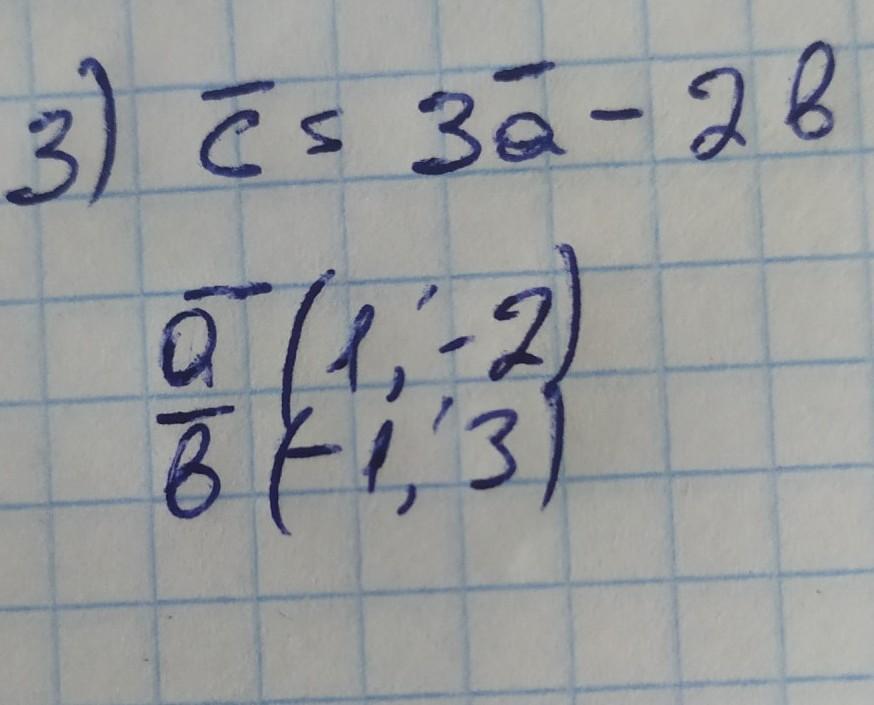 3) c̅ = 3a̅ - 2b
a̅ (1; -2)
b̅ (-1; 3)